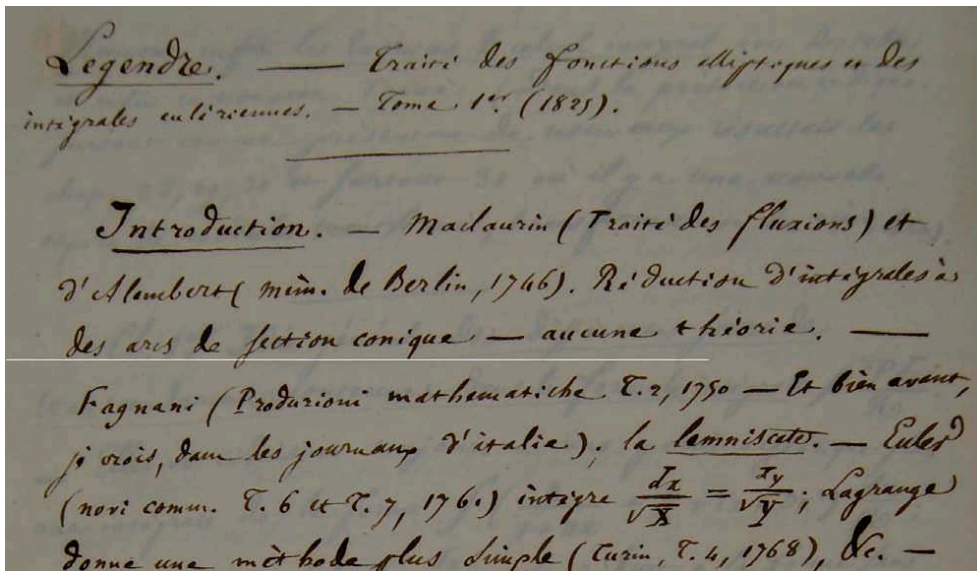 Legendre. — Traité des fonctions elliptiques et des
intégrales eulériennes. — Tome 1er. (1825).
Introduction. — Maclaurin (Traité des fluxions) et
d'Alembert (mém. de Berlin, 1746). Réduction d'intégrales à
des arcs de section conique — aucune théorie. —
Fagnani (Produzioni mathematiche T. 2, 1750 — Et bien avant,
je crois, dans les journaux d'italie); la lemniscate. — Euler
(novi comm. T. 6 et T. 7, 1761) intègre dx/√X = dy/√Y; Lagrange
donne une méthode plus simple (Turin, T. 4, 1768), &c. —